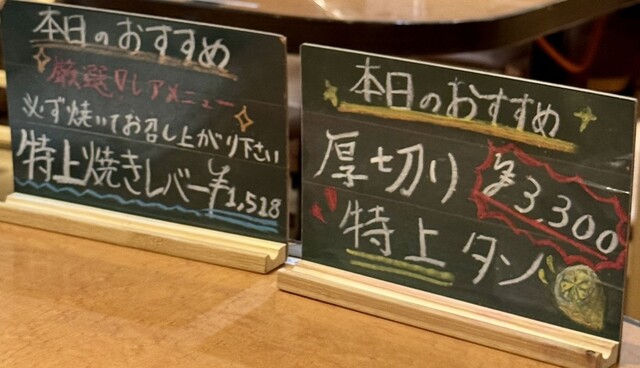 本日のおすすめ
厳選レアメニュー
必ず焼いてお召し上がり下さい
特上焼きレバー¥1,518
本日のおすすめ
厚切り ¥3,300
特上タン